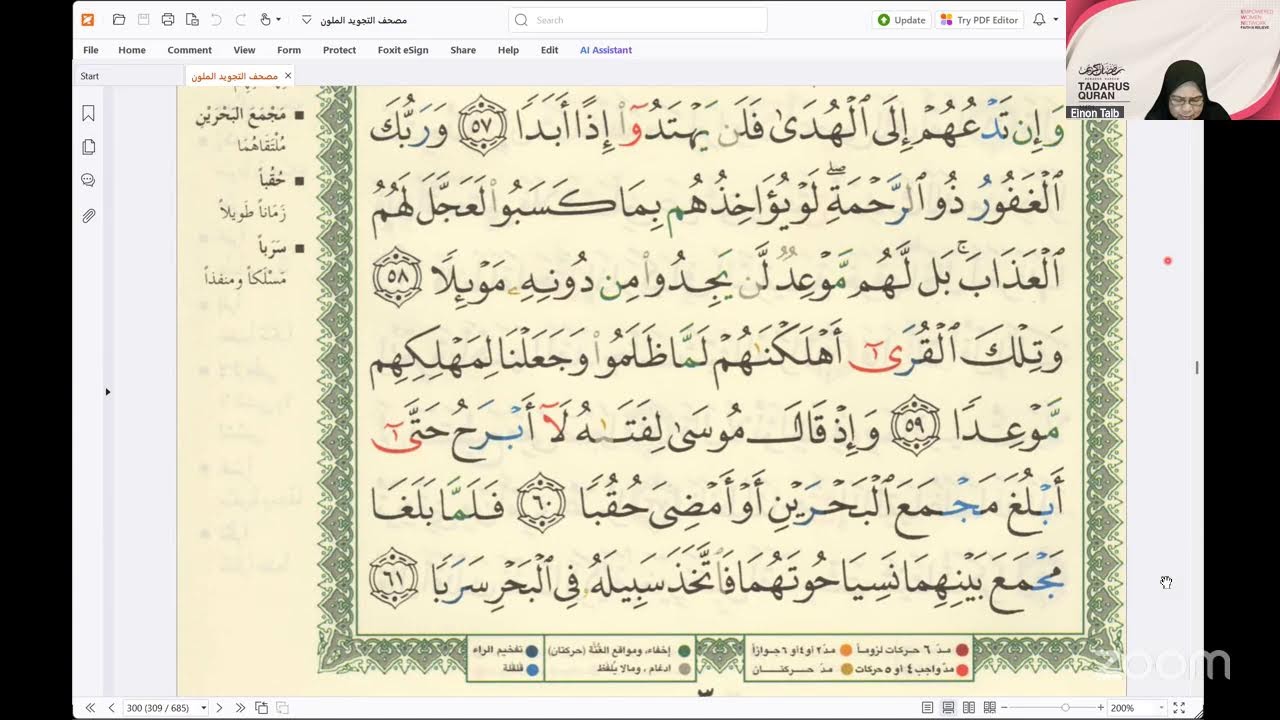 مصحف التجويد الملون
Search
Update
Try PDF Editor
File Home Comment View Form Protect Foxit eSign Share Help Edit AI Assistant
Start
مصحف التجويد الملون
EMPOWERED
WOMEN
NETWORK
FAITH IS BELIEVE
TADARUS
QURAN
Einon Taib
وَإِن تَدْعُهُمْ إِلَى ٱلْهُدَىٰ فَلَن يَهْتَدُوٓا۟ إِذًا أَبَدًا ٥٧ وَرَبُّكَ
ٱلْغَفُورُ ذُو ٱلرَّحْمَةِ ۖ لَوْ يُؤَاخِذُهُم بِمَا كَسَبُوا۟ لَعَجَّلَ لَهُمُ
ٱلْعَذَابَ ۚ بَل لَّهُم مَّوْعِدٌ لَّن يَجِدُوا۟ مِن دُونِهِۦ مَوْئِلًا ٥٨
وَتِلْكَ ٱلْقُرَىٰٓ أَهْلَكْنَٰهُمْ لَمَّا ظَلَمُوا۟ وَجَعَلْنَا لِمَهْلِكِهِم
مَّوْعِدًا ٥٩ وَإِذْ قَالَ مُوسَىٰ لِفَتَىٰهُ لَآ أَبْرَحُ حَتَّىٰٓ
أَبْلُغَ مَجْمَعَ ٱلْبَحْرَيْنِ أَوْ أَمْضِىَ حُقُبًا ٦٠ فَلَمَّا بَلَغَا
مَجْمَعَ بَيْنِهِمَا نَسِيَا حُوتَهُمَا فَٱتَّخَذَ سَبِيلَهُۥ فِى ٱلْبَحْرِ سَرَبًا ٦١
■ مَجْمَعَ الْبَحْرَيْنِ
مُلْتَقَاهُمَا
■ حُقُباً
زَمَاناً طَوِيلاً
■ سَرَباً
مَسْلَكاً ومنفذاً
مدّ ٦ حركات لزوماً مدّ ٢ او ٤ او ٦ جوازاً
مدّ واجب ٤ او ٥ حركات مدّ حركتان
إخفاء، ومواقع الغُنَّة (حركتان) تفخيم الراء
ادغام ، ومالا يُلفَظ قلقلة
zoom
300 (309 / 685)
200%